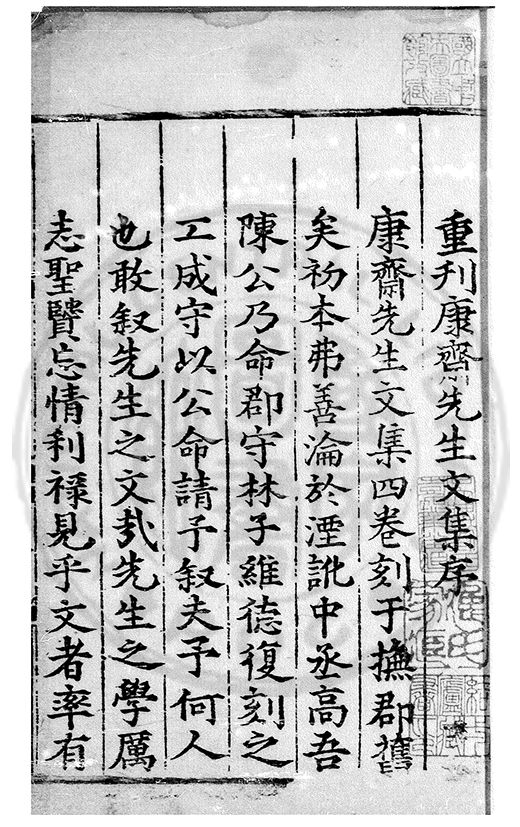 重刋康齋先生文集序
康齋先生文集四卷刻于撫郡舊
矣初本弗善淪於湮訛中丞高吾
陳公乃命郡守林子維德復刻之
工成守以公命請予叙夫予何人
也敢叙先生之文㢤先生之學厲
志聖賢忘情利禄見乎文者率有